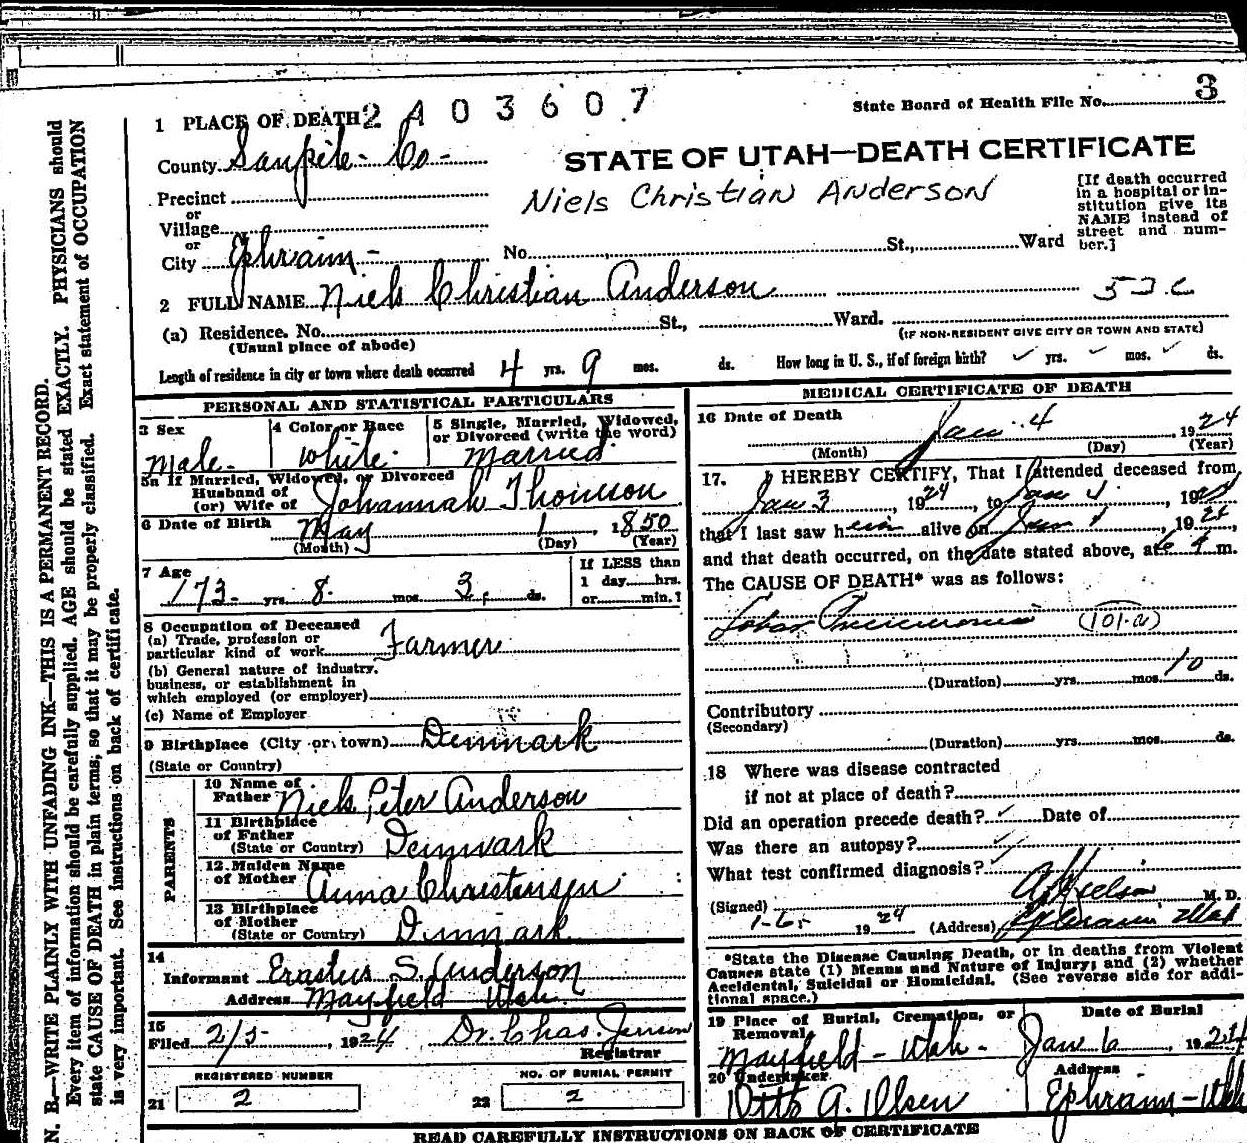 3
State Board of Health File No.
2 A 0 3 6 0 7
1 PLACE OF DEATH
STATE OF UTAH—DEATH CERTIFICATE
County Sanpete Co
Niels Christian Anderson
[If death occurred in a hospital or institution give its NAME instead of street and number.]
Precinct
or
Village
or
City Ephraim No. St., Ward
2 FULL NAME Niels Christian Anderson
(a) Residence. No. St., Ward.
(Usual place of abode) (IF NON-RESIDENT GIVE CITY OR TOWN AND STATE)
Length of residence in city or town where death occurred 4 yrs. 9 mos. ds. How long in U. S., if of foreign birth? yrs. mos. ds.
PERSONAL AND STATISTICAL PARTICULARS
3 Sex
Male
4 Color or Race
White
5 Single, Married, Widowed, or Divorced (write the word)
Married
5a If Married, Widowed, or Divorced
Husband of
(or) Wife of Johannah Thomson
6 Date of Birth May 1, 1850
(Month) (Day) (Year)
7 Age
73 yrs. 8 mos. 3 ds.
If LESS than
1 day hrs.
or min.?
8 Occupation of Deceased
(a) Trade, profession or
particular kind of work Farmer
(b) General nature of industry.
business, or establishment in
which employed (or employer)
(c) Name of Employer
9 Birthplace (City or town) Denmark
(State or Country)
PARENTS
10 Name of
Father Niels Peter Anderson
11 Birthplace
of Father
(State or Country) Denmark
12 Maiden Name
of Mother Anna Christensen
13 Birthplace
of Mother
(State or Country) Denmark
14
Informant Erastus S. Anderson
Address Mayfield Utah
15
Filed 2/5 1924 Dr. Chas. Jenson
Registrar
REGISTERED NUMBER
21 2
NO. OF BURIAL PERMIT
22 2
MEDICAL CERTIFICATE OF DEATH
16 Date of Death
Jan. 4, 1924
(Month) (Day) (Year)
17. I HEREBY CERTIFY, That I attended deceased from
Jan 3, 1924, to Jan 4, 1924
that I last saw him alive on Jan, 1924,
and that death occurred, on the date stated above, at m.
The CAUSE OF DEATH* was as follows:
Lobar Pneumonia (101-a)
(Duration) yrs. mos. 10 ds.
Contributory
(Secondary)
(Duration) yrs. mos. ds.
18 Where was disease contracted
if not at place of death?
Did an operation precede death? Date of
Was there an autopsy?
What test confirmed diagnosis?
(Signed) M. D.
1-6- 1924 (Address) Ephraim Utah
*State the Disease Causing Death, or in deaths from Violent
Causes state (1) Means and Nature of Injury; and (2) whether
Accidental, Suicidal or Homicidal. (See reverse side for additional space.)
19 Place of Burial, Cremation, or
Removal
Mayfield - Utah.
Date of Burial
Jan 6, 1924
20 Undertaker
Otto A. Olsen
Address
Ephraim - Utah
READ CAREFULLY INSTRUCTIONS ON BACK OF CERTIFICATE
N. B.—WRITE PLAINLY WITH UNFADING INK—THIS IS A PERMANENT RECORD.
Every item of information should be carefully supplied. AGE should be stated EXACTLY. PHYSICIANS should
state CAUSE OF DEATH in plain terms, so that it may be properly classified. Exact statement of OCCUPATION
is very important. See instructions on back of certificate.